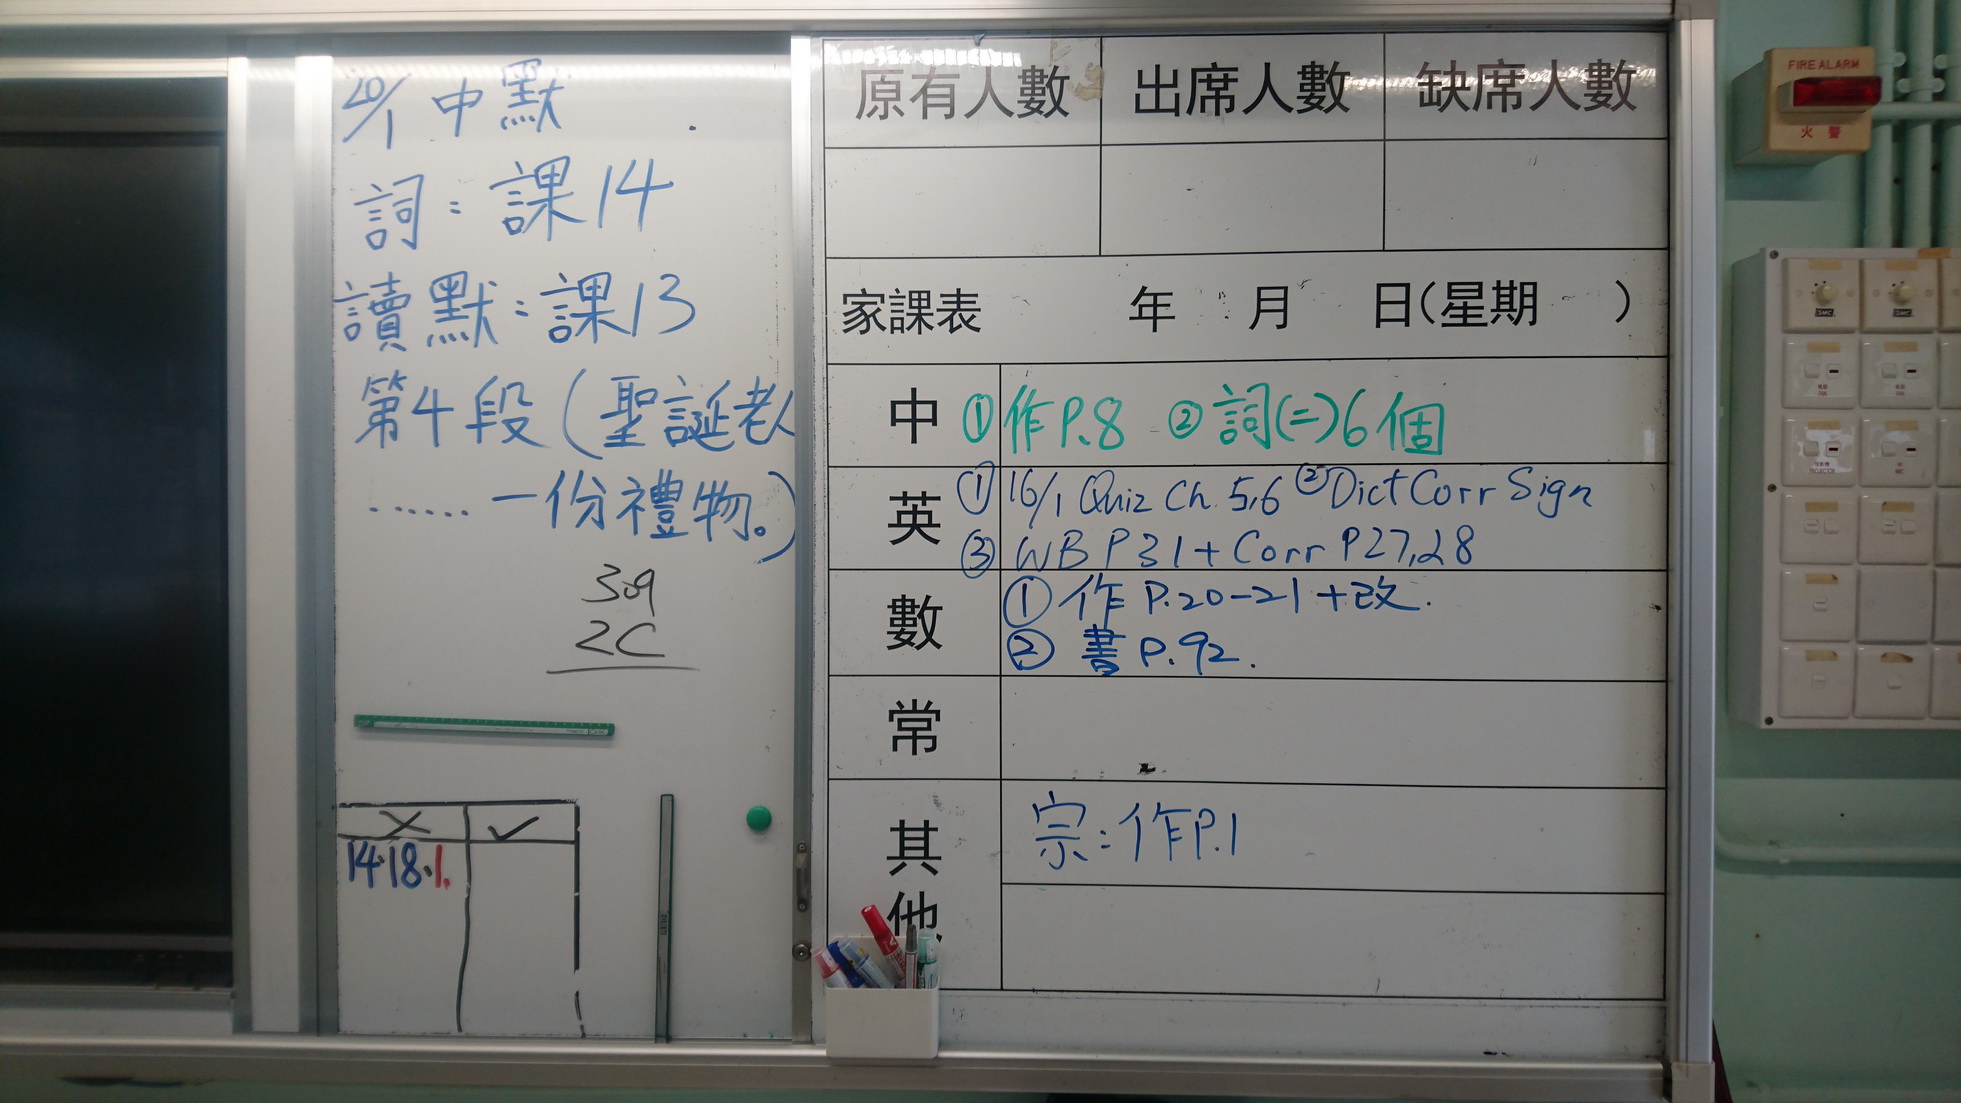 20/1 中默
詞：課14
讀默：課13
第4段(聖誕老人
......一份禮物。)
2C
X ✓
14.18.1.
原有人數 出席人數 缺席人數
家課表 年 月 日(星期 )
中 ①作P.8 ②詞(二)6個
英 ①16/1 Quiz Ch. 5,6 ②Dict Corr Sign
③ WB P31 + Corr P27,28
數 ①作 P.20-21 +改.
② 書 P.92.
常
其他 宗：作P.1
FIRE ALARM
火警